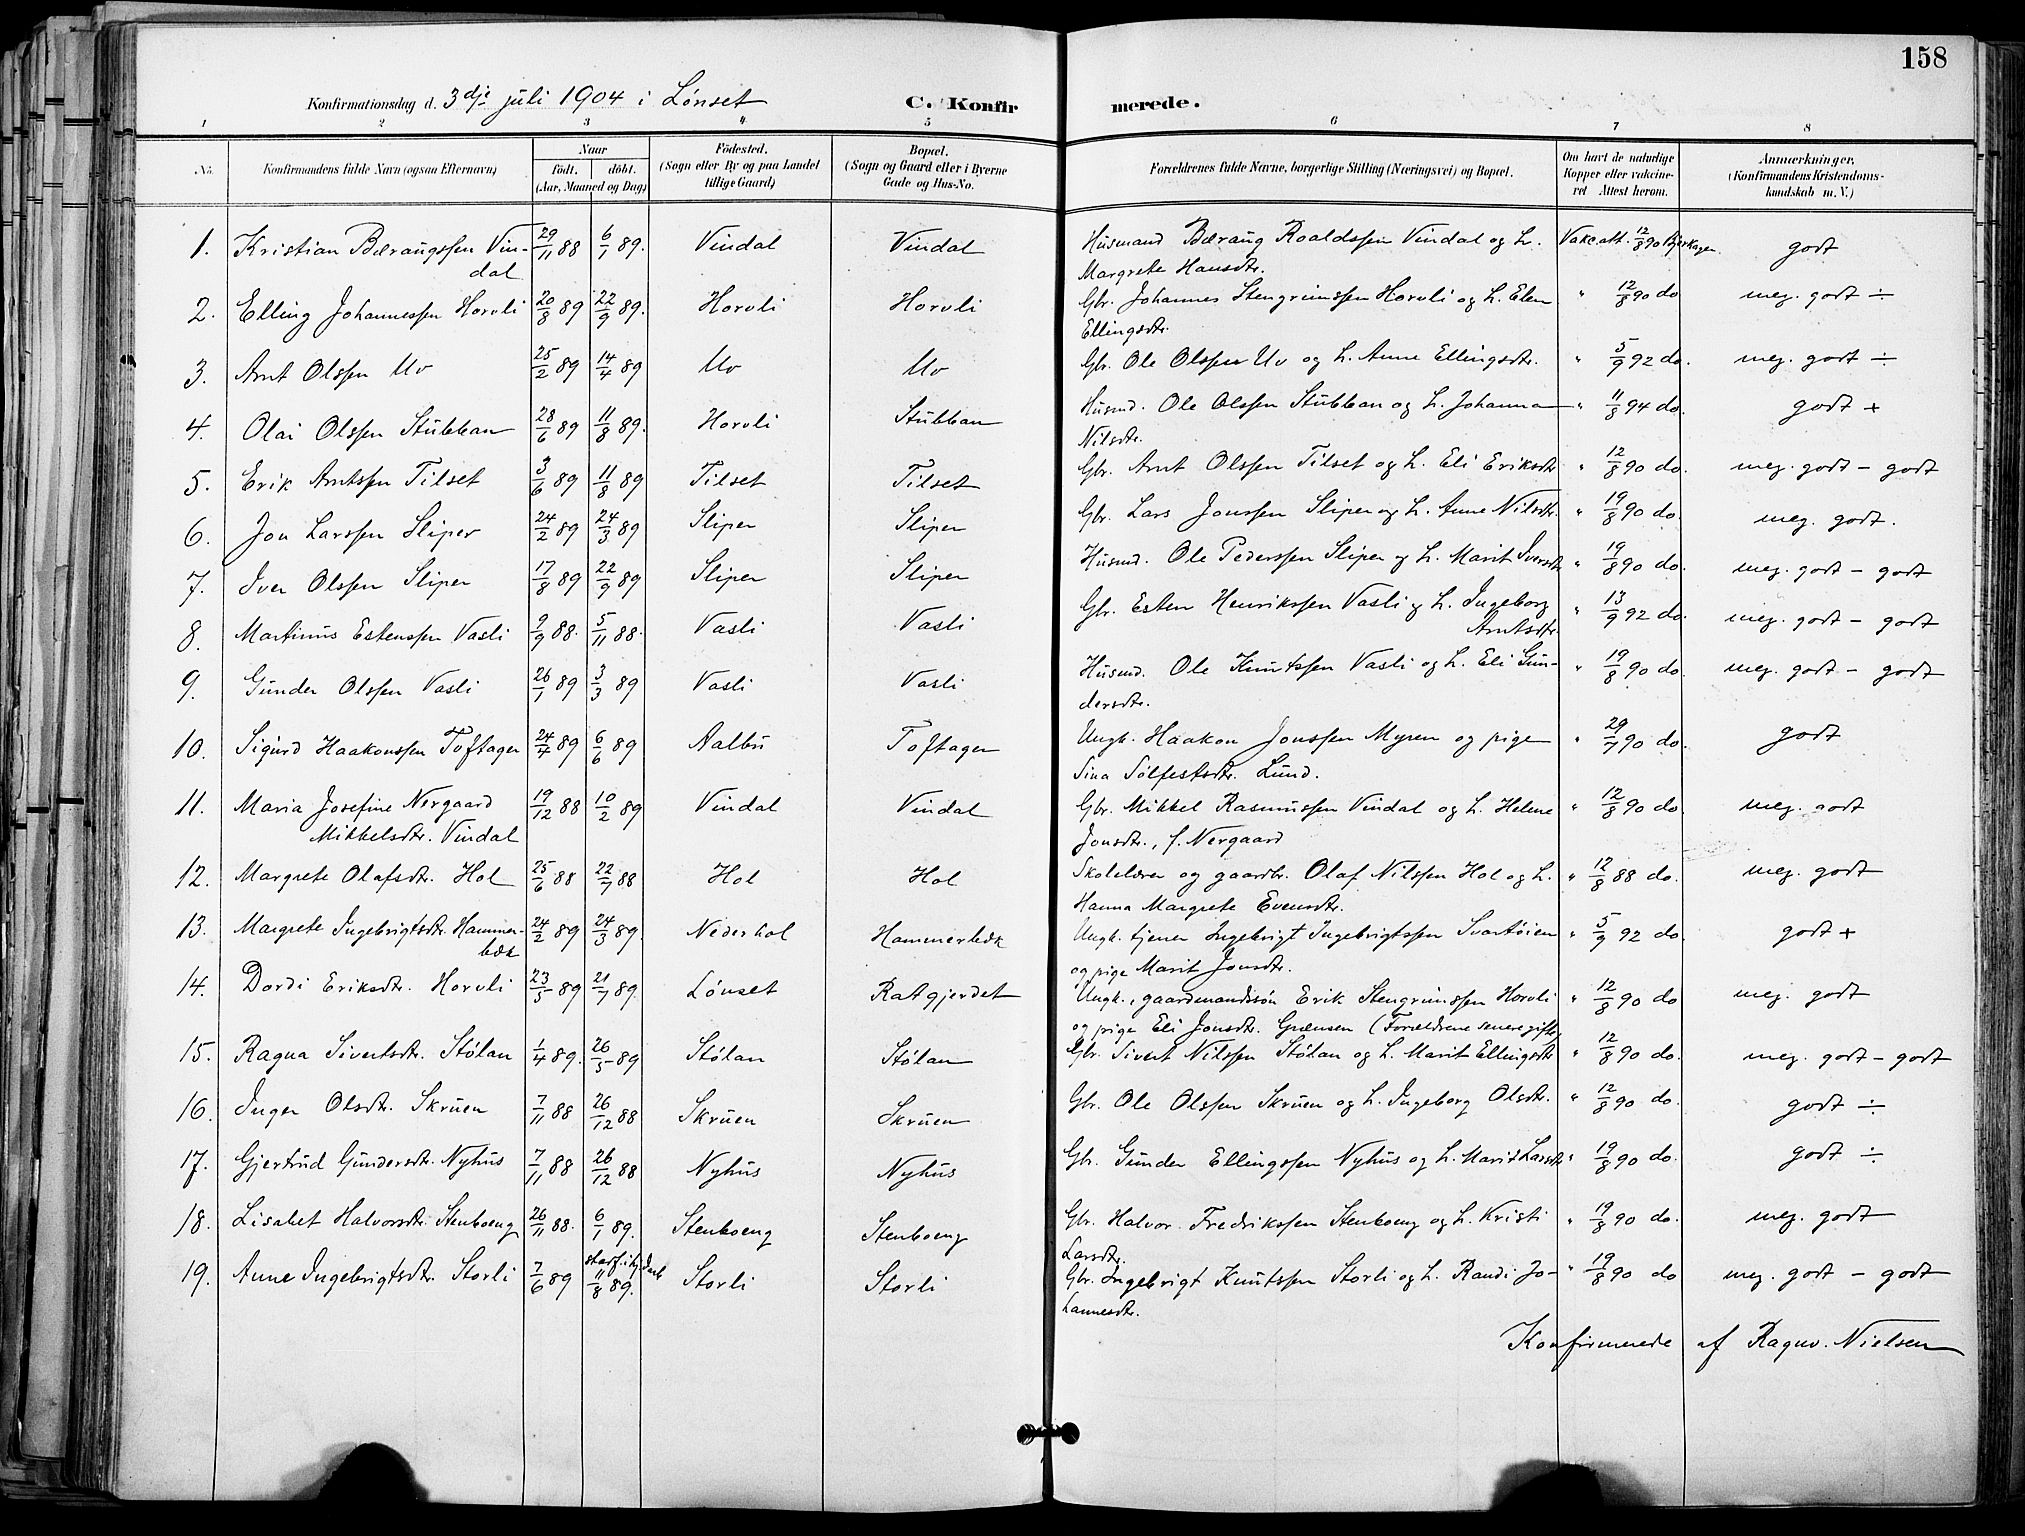 158
Konfirmationsdag d. 3dje juli 1904 i Lönset C. Konfirmerede.
1 2 3 4 5 6 7 8
No. Konfirmandens fulde Navn (ogsaa Efternavn) Naar født. døbt. (Aar, Maaned og Dag) Fødested. (Sogn eller By og paa Landet tillige Gaard) Bopæl. (Sogn og Gaard eller i Byerne Gade og Hus-No. Forældrenes fulde Navne, borgerlige Stilling (Næringsvei) og Bopæl. Om havt de naturlige Kopper eller vaccineret Attest herom. Anmærkninger, (Konfirmandens Kristendomskundskab m. V.)
1. Kristian Bæraugssen Vindal 29/11 88 6/1 89. Vindal Vindal Husmand Bæraug Roaldssen Vindal og h. Vakc.att. 12/8 90 godt
Margrete Hansdtr.
2. Elling Johannessen Horvli 20/8 89 22/9 89. Horvli Horvli Gbr. Johannes Stengrimssen Horvli og h. Elen " 12/8 90 do meg. godt ÷
Ellingsdtr.
3. Arnt Olssen Uv 25/2 89 14/4 89 Uv Uv Gbr. Ole Olssen Uv og h. Anne Ellingsdtr. " 5/9 92 do. meg. godt ÷
4. Olai Olssen Stubban 28/6 89 11/8 89. Horvli Stubban Husmd. Ole Olssen Stubban og h. Johanna " 11/8 94 do. godt +
Nilsdtr.
5. Erik Arntssen Tilset 3/6 89 11/8 89 Tilset Tilset Gbr. Arnt Olssen Tilset og h. Eli Eriksdtr " 12/8 90 do. meg. godt - godt
6. Jon Larssen Sliper 24/2 89 24/3 89 Sliper Sliper Gbr. Lars Jonssen Sliper og h. Anne Nilsdtr. " 19/8 90 do. meg. godt.
7. Iver Olssen Sliper 17/8 89 22/9 89 Sliper Sliper Husmd. Ole Pederssen Sliper og h. Marit Iversdtr " 19/8 90 do. meg. godt - godt
8. Martinus Estenssen Vasli 9/9 88. 5/11 88. Vasli Vasli Gbr. Esten Henrikssen Vasli og h. Ingeborg " 13/9 92 do. meg. godt - godt
Arntsdtr.
9. Gunder Olssen Vasli 26/1 89 3/3 89 Vasli Vasli Husmd. Ole Knutssen Vasli og h. Eli Gun- " 19/8 90 do. meg. godt - godt
dersdtr.
10. Sigurd Haakonssen Toftager 24/4 89 6/6 89 Aalbu Toftager Ungk. Haakon Jonssen Myren og pige " 29/7 90 do. godt
Sina Sølfestsdtr. Lund.
11. Maria Josefine Nergaard 19/12 88 10/2 89 Vindal Vindal Gbr. Mikkel Rasmussen Vindal og h. Helene " 12/8 90 do. meg. godt
Mikkelsdtr. Vindal Jonsdtr., f. Nergaard
12. Margrete Olafsdtr. Hol 25/6 88 22/7 88 Hol Hol Skolelærer og gaardbr. Olaf Nilssen Hol og h. " 12/8 88 do. meg. godt
Hanna Margrete Evensdtr.
13. Margrete Ingebrigtsdtr. Hammer- 24/2 89 24/3 89. Nederhol Hammerbæk Ungk. tjener Ingebrigt Ingebrigtssen Svartøien " 5/9 92 do. godt +
bæk og pige Marit Jonsdtr.
14. Dordi Eriksdtr. Horvli 23/5 89 21/7 89. Lönset Ratgjerdet Ungk., gaardmandssøn Erik Stengrimssen Horvli " 12/8 90 do meg. godt
og pige Eli Jonsdtr. Grænsen (Forældrene senere gifte)
15. Ragna Sivertsdtr. Stölan 1/4 89. 26/5 89 Stölan Stölan Gbr. Sivert Nilssen Stölan og h. Marit Ellingsdtr " 12/8 90 do. meg. godt - godt
16. Inger Olsdtr. Skruen 7/11 88 26/12 88 Skruen Skruen Gbr. Ole Olssen Skruen og h. Ingeborg Olsdtr. " 12/8 90 do. godt ÷
17. Gjertrud Gundersdtr. Nyhus 7/11 88 26/12 88 Nyhus Nyhus Gbr. Gunder Ellingssen Nyhus og h. Marit Larsdtr " 19/8 90 do. godt ÷
18. Lisabet Halvorsdtr. Stenboeng 26/11 88. 6/1 89. Stenboeng Stenboeng Gbr. Halvor Fredrikssen Stenboeng og h. Kristi " 19/8 90 do. meg. godt
Larsdtr.
19. Anne Ingebrigtsdtr. Storli 7/6 89 11/8 89. Storli Storli Gbr. Ingebrigt Knutssen Storli og h. Randi Jo- " 19/8 90 do meg. godt - godt
hannesdtr.
Konfirmerede af Ragnv. Nielsen